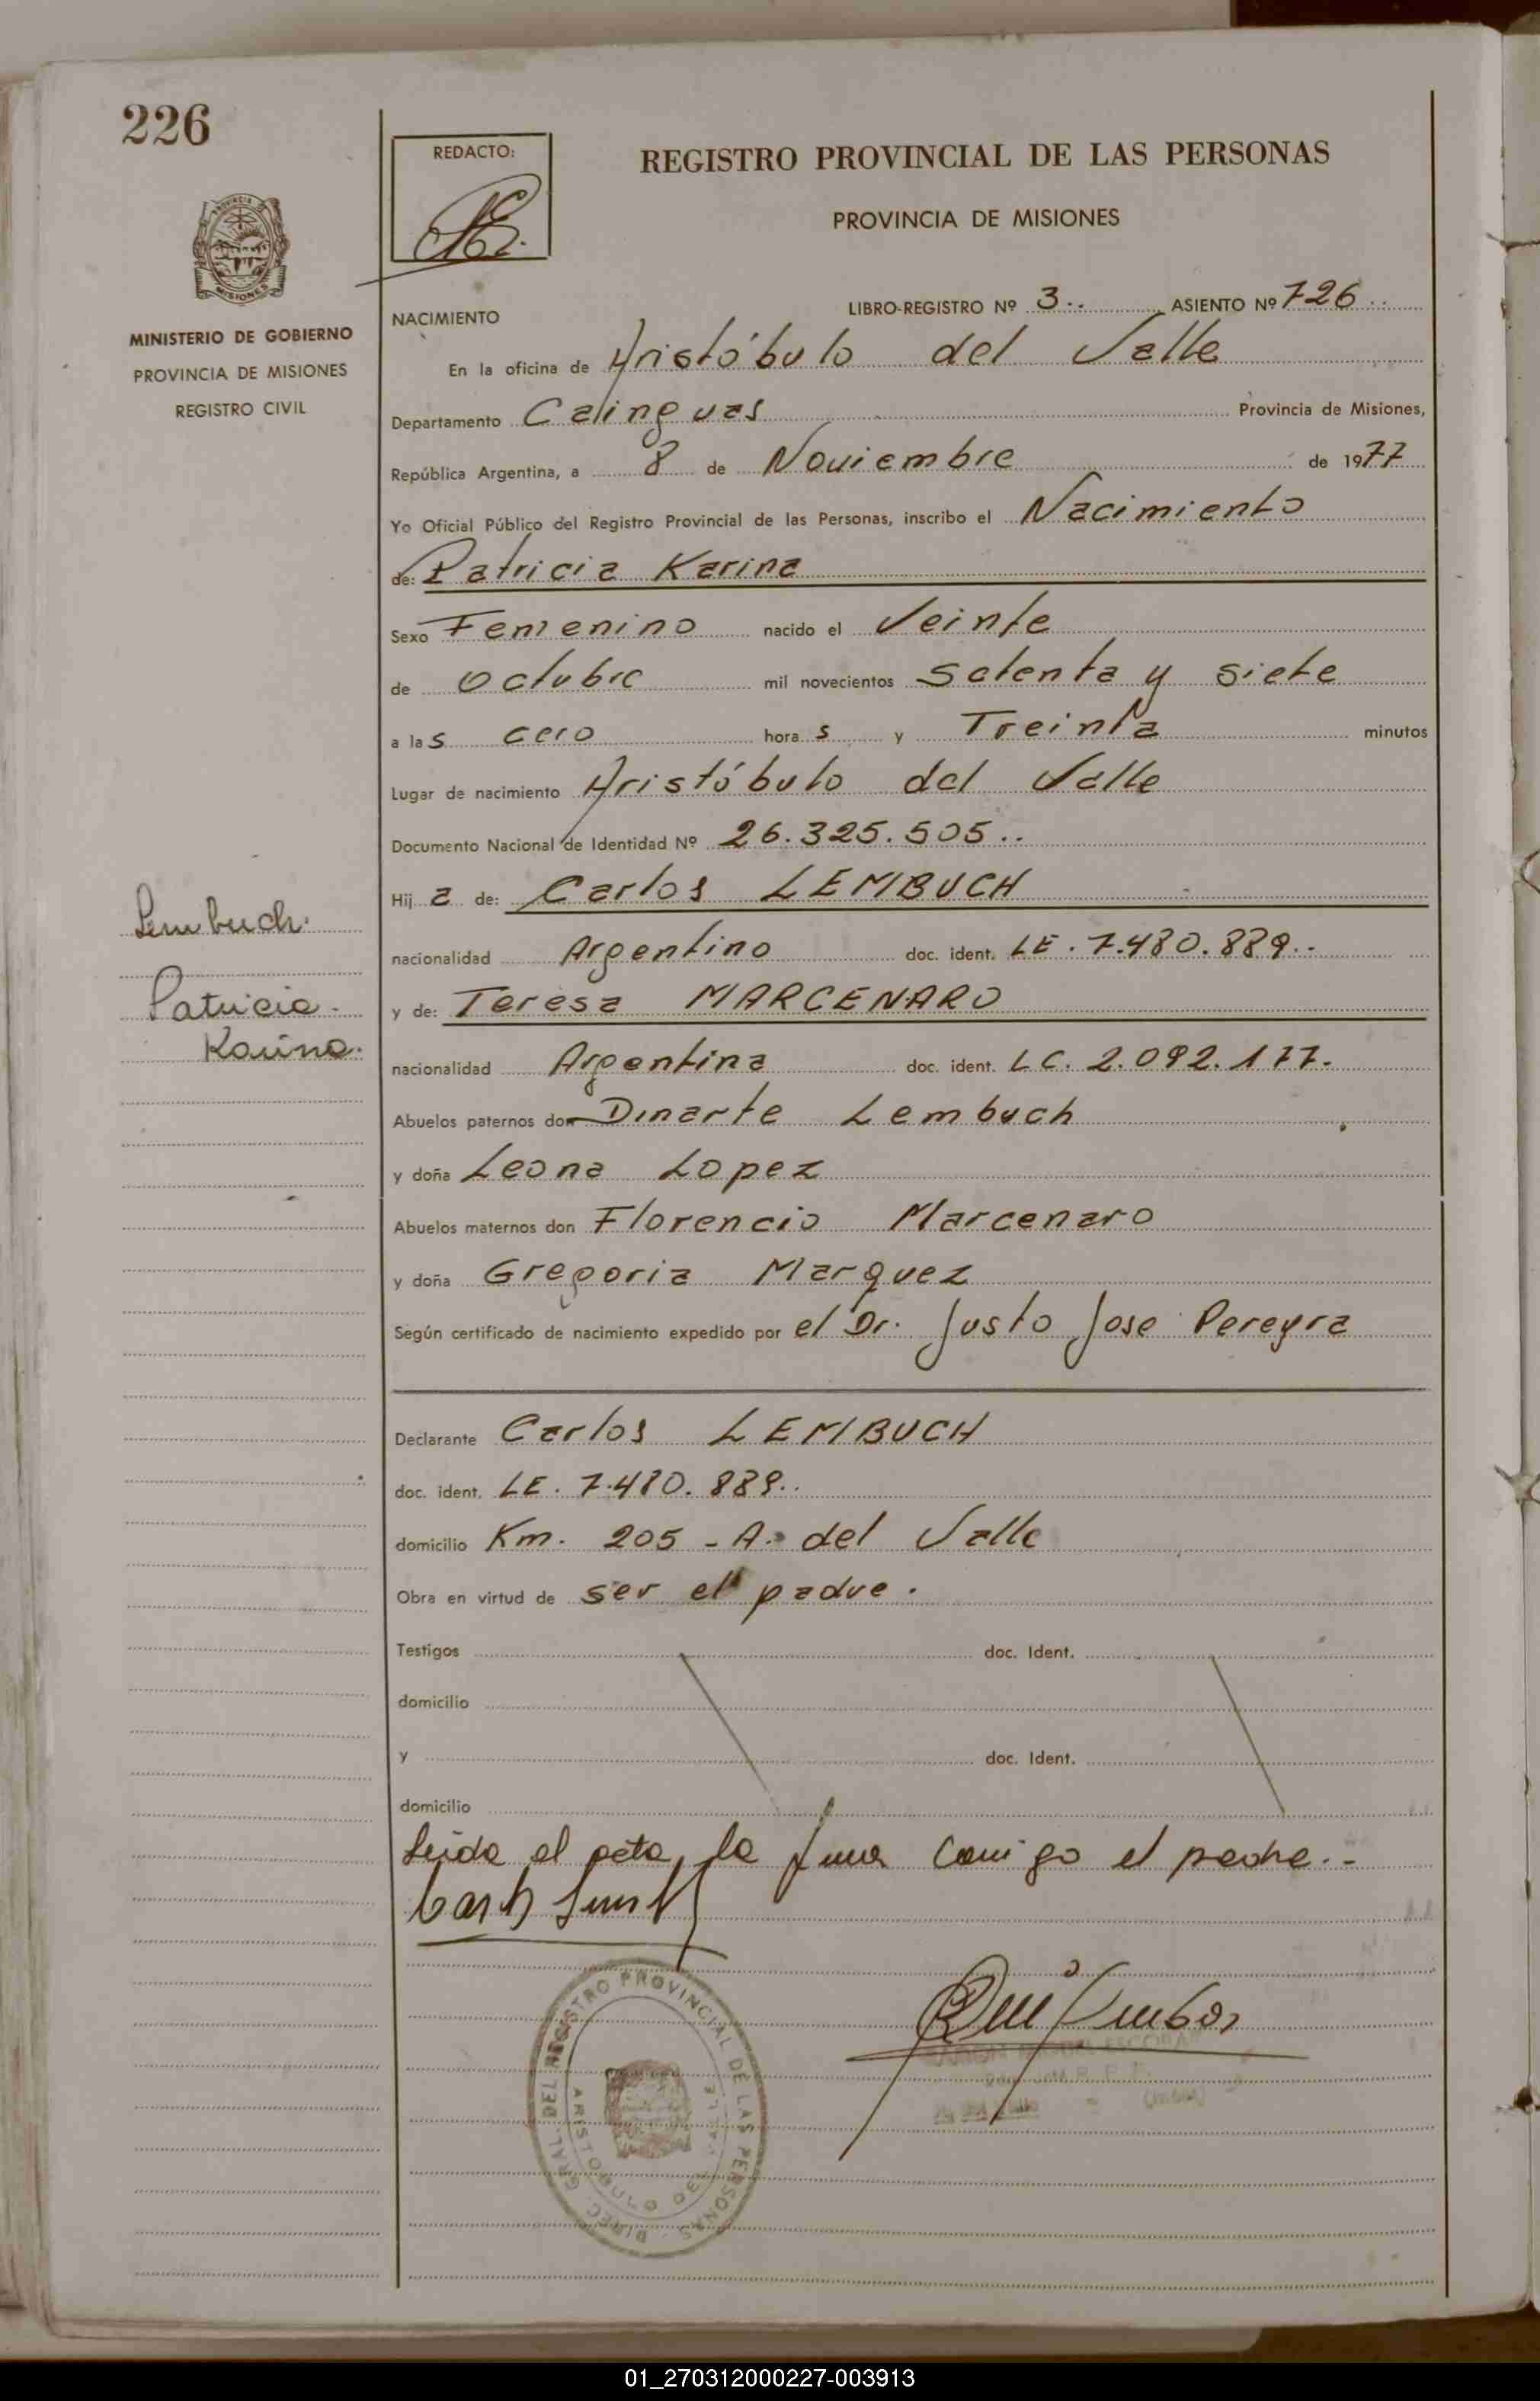 226
REDACTO:
REGISTRO PROVINCIAL DE LAS PERSONAS
PROVINCIA DE MISIONES
PROVINCIA DE
MISIONES
MINISTERIO DE GOBIERNO
PROVINCIA DE MISIONES
REGISTRO CIVIL
NACIMIENTO LIBRO-REGISTRO Nº 3.. ASIENTO Nº 726..
En la oficina de Aristóbulo del Valle
Departamento Cainguas Provincia de Misiones,
República Argentina, a 8 de Noviembre de 1977
Yo Oficial Público del Registro Provincial de las Personas, inscribo el Nacimiento
de: Patricia Karina
Sexo Femenino nacido el Veinte
de Octubre mil novecientos setenta y siete
a las cero horas y Treinta minutos
Lugar de nacimiento Aristóbulo del Valle
Documento Nacional de Identidad Nº 26.325.505..
Hija de: Carlos LEMBUCH
Lembuch.
nacionalidad Argentino doc. ident. LE. 7.480.889..
Patricia.
y de: Teresa MARCENARO
Karina.
nacionalidad Argentina doc. ident. LC. 2.092.177.
Abuelos paternos don Dinarte Lembuch
y doña Leona Lopez
Abuelos maternos don Florencio Marcenaro
y doña Gregoria Marquez
Según certificado de nacimiento expedido por el Dr. Justo Jose Pereyra
Declarante Carlos LEMBUCH
doc. ident. LE. 7.480.889..
domicilio Km. 205 - A. del Valle
Obra en virtud de ser el padre.
Testigos doc. Ident.
domicilio
y doc. Ident.
domicilio
Leida el acta, la firma conmigo el padre.-
DIREC. GRAL. DEL REGISTRO PROVINCIAL DE LAS PERSONAS
ARISTOBULO DEL VALLE
ESCOBAR
01_270312000227-003913